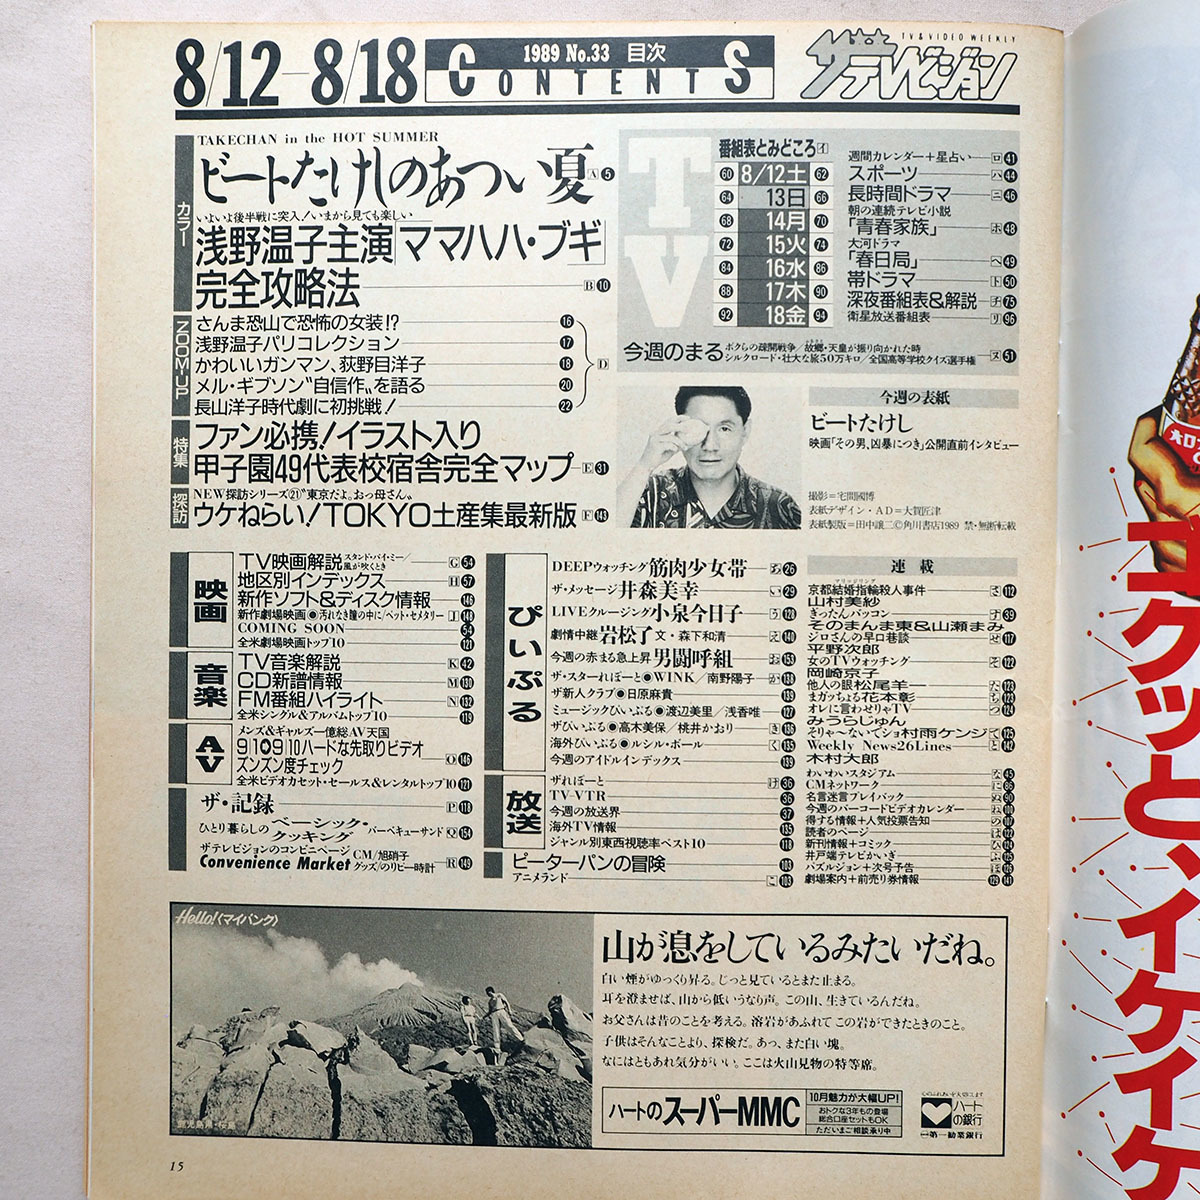 8/12－8/18
1989 No.33 目次
CONTENTS
TV & VIDEO WEEKLY
ザテレビジョン
カラー
TAKECHAN in the HOT SUMMER
ビートたけしのあつい夏 A 5
いよいよ後半戦に突入！いまから見ても楽しい
浅野温子主演「ママハハ・ブギ」
完全攻略法 B 10
ZOOM-UP
さんま恐山で恐怖の女装!? 16
浅野温子パリコレクション 17
かわいいガンマン、荻野目洋子 18
メル・ギブソン“自信作”を語る 20
長山洋子時代劇に初挑戦！ 22
D
特集
ファン必携！イラスト入り
甲子園49代表校宿舎完全マップ E 31
探訪
NEW探訪シリーズ㉑“東京だよ。おっ母さん”
ウケねらい！TOKYO土産集最新版 F 143
TV
番組表とみどころ イ
60 8/12土 62
64 13日 66
68 14月 70
72 15火 74
84 16水 86
88 17木 90
92 18金 94
週間カレンダー＋星占い ロ 41
スポーツ ハ 44
長時間ドラマ ニ 46
朝の連続テレビ小説
「青春家族」 ホ 48
大河ドラマ
「春日局」 ヘ 49
帯ドラマ ト 50
深夜番組表&解説 チ 75
衛星放送番組表 リ 96
今週のまる
ボクらの疎開戦争／故郷・天皇が振り向かれた時
シルクロード・壮大な旅50万キロ／全国高等学校クイズ選手権 ヌ 51
今週の表紙
ビートたけし
映画「その男、凶暴につき」公開直前インタビュー
撮影＝宅間國博
表紙デザイン・AD＝大賀匠津
表紙製版＝田中譲二Ⓒ角川書店1989 禁・無断転載
映画
TV映画解説 スタンド・バイ・ミー／風が吹くとき G 54
地区別インデックス H 57
新作ソフト&ディスク情報 146
新作劇場映画●汚れなき瞳の中に／ペット・セメタリー I 148
COMING SOON 54
全米劇場映画トップ10 121
音楽
TV音楽解説 K 42
CD新譜情報 M 130
FM番組ハイライト N 132
全米シングル&アルバムトップ10 119
AV
メンズ&ギャルズ一億総AV天国
9|10●9|10ハードな先取りビデオ
ズンズン度チェック O 146
全米ビデオカセット・セールス&レンタルトップ10 121
ザ・記録 P 118
ひとり暮らしのベーシック・クッキング バーベキューサンド Q 154
ザテレビジョンのコンビニページ
Convenience Market CM／旭硝子 グッズ／のりピー時計 R 149
ぴいぷる
DEEPウォッチング 筋肉少女帯 あ 26
ザ・メッセージ 井森美幸 い 29
LIVEクルージング 小泉今日子 う 128
劇情中継 岩松了 文・森下和清 え 140
今週の赤まる急上昇 男闘呼組 お 153
ザ・スターれぽーと●WINK／南野陽子 か 138
ザ新人クラブ●日原麻貴 139
ミュージックぴいぷる●渡辺美里／浅香唯 127
ザぴいぷる●高木美保／桃井かおり き 136
海外ぴいぷる●ルシル・ボール く 135
今週のアイドルインデックス 139
放送
ザれぽーと け 36
TV-VTR 36
今週の放送界 37
海外TV情報 135
ジャンル別東西視聴率ベスト10 118
ピーターパンの冒険 103
アニメランド こ 103
連載
京都結婚指輪殺人事件 さ 112
マリッジリング
山村美紗
ぎったんバッコン ナ 39
そのまんま東&山瀬まみ
ジロさんの早口巷談 せ 117
平野次郎
女のTVウォッチング そ 122
岡崎京子
他人の眼 松尾羊一 た 123
まガッちょる 花本彰 ち 123
オレに言わせりゃTV つ 124
みうらじゅん
そりゃ～ないでショ 村雨ケンジ て 125
Weekly News26Lines と 142
木村太郎
わいわいスタジアム な 45
CMネットワーク に 95
名言迷言プレイバック ぬ 90
今週のバーコードビデオカレンダー ね 108
得する情報＋人気投票告知 の 107
読者のページ は 122
新刊情報＋コミック ひ 124
井戸端テレビかいぎ ふ 125
パズルジョン＋次号予告 ほ 126
劇場案内＋前売り券情報 129 141
Hello!〈マイバンク〉
鹿児島県・桜島
山が息をしているみたいだね。
白い煙がゆっくり昇る。じっと見ているとまた止まる。
耳を澄ませば、山から低いうなり声。この山、生きているんだね。
お父さんは昔のことを考える。溶岩があふれてこの岩ができたときのこと。
子供はそんなことより、探検だ。あっ、また白い塊。
なにはともあれ気分がいい。ここは火山見物の特等席。
ハートのスーパーMMC
10月魅力が大幅UP!
おトクな3年もの登場
総合口座セットもOK
ただいまご相談承り中
心のふれあいを大切にします
ハートの銀行
第一勧業銀行
15
エクッと、イケイケ